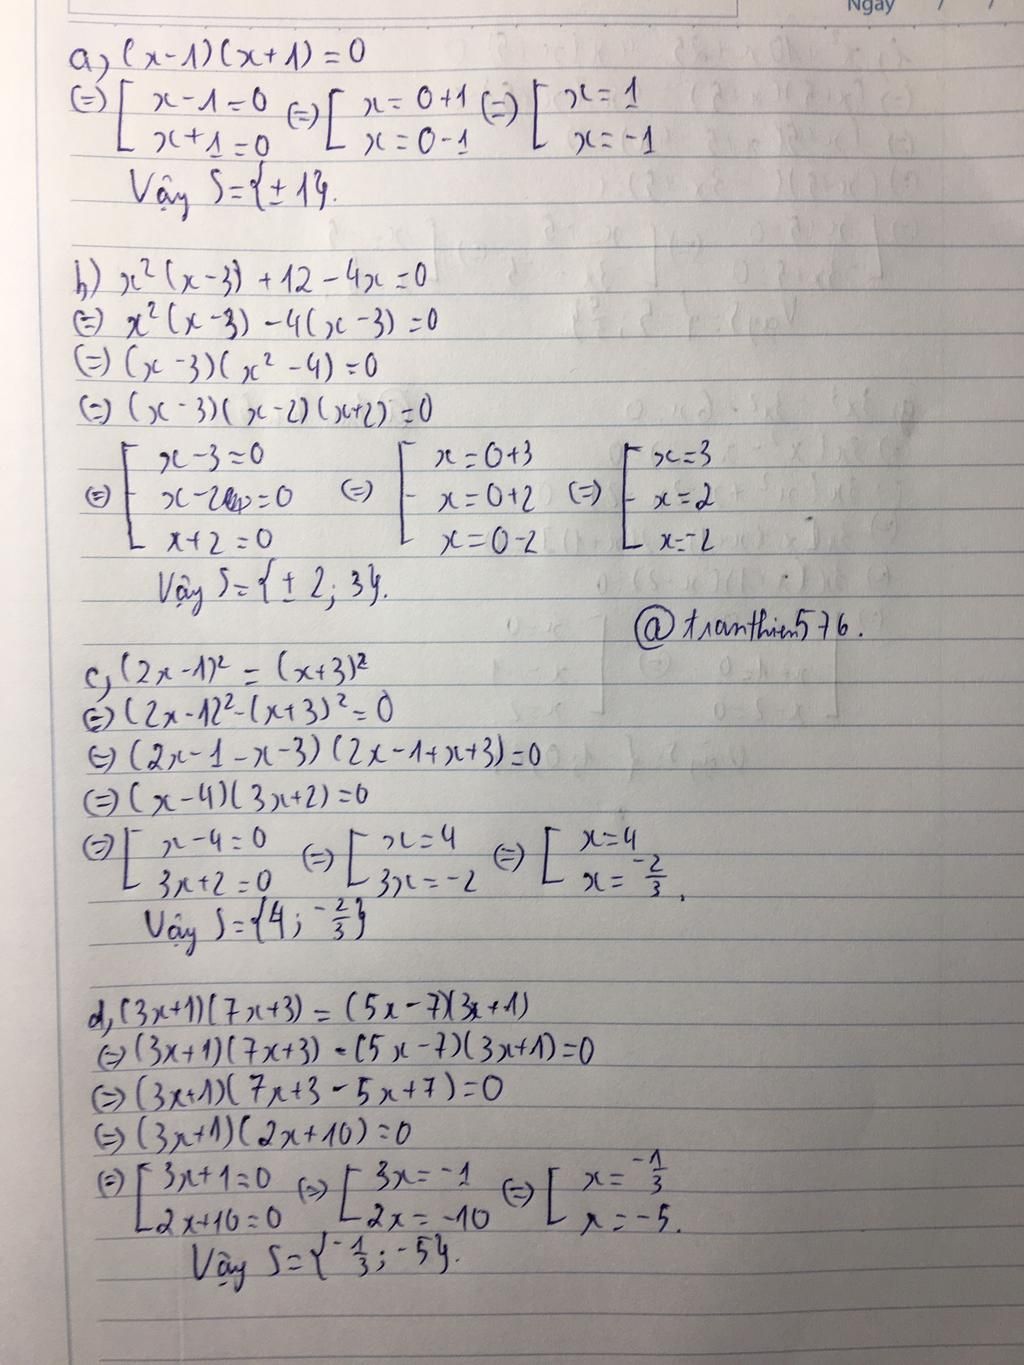 Ngày / /
a, (x-1)(x+1)=0
(=) [ x-1=0 (=) [ x=0+1 (=) [ x=1
x+1=0 x=0-1 x=-1
Vậy S={±1}.
b) x²(x-3)+12-4x=0
(=) x²(x-3)-4(x-3)=0
(=) (x-3)(x²-4)=0
(=) (x-3)(x-2)(x+2)=0
(=) [ x-3=0 (=) [ x=0+3 (=) [ x=3
x-2=0 x=0+2 x=2
x+2=0 x=0-2 x=-2
Vậy S={±2; 3}.
@tranthien576.
c, (2x-1)² = (x+3)²
(=) (2x-1)²-(x+3)²=0
(=) (2x-1-x-3)(2x-1+x+3)=0
(=) (x-4)(3x+2)=0
(=) [ x-4=0 (=) [ x=4 (=) [ x=4
3x+2=0 3x=-2 x=-2/3.
Vậy S={4; -2/3}
d, (3x+1)(7x+3) = (5x-7)(3x+1)
(=) (3x+1)(7x+3) - (5x-7)(3x+1)=0
(=) (3x+1)(7x+3-5x+7)=0
(=) (3x+1)(2x+10)=0
(=) [ 3x+1=0 (=) [ 3x=-1 (=) [ x=-1/3
2x+10=0 2x=-10 x=-5.
Vậy S={-1/3; -5}.